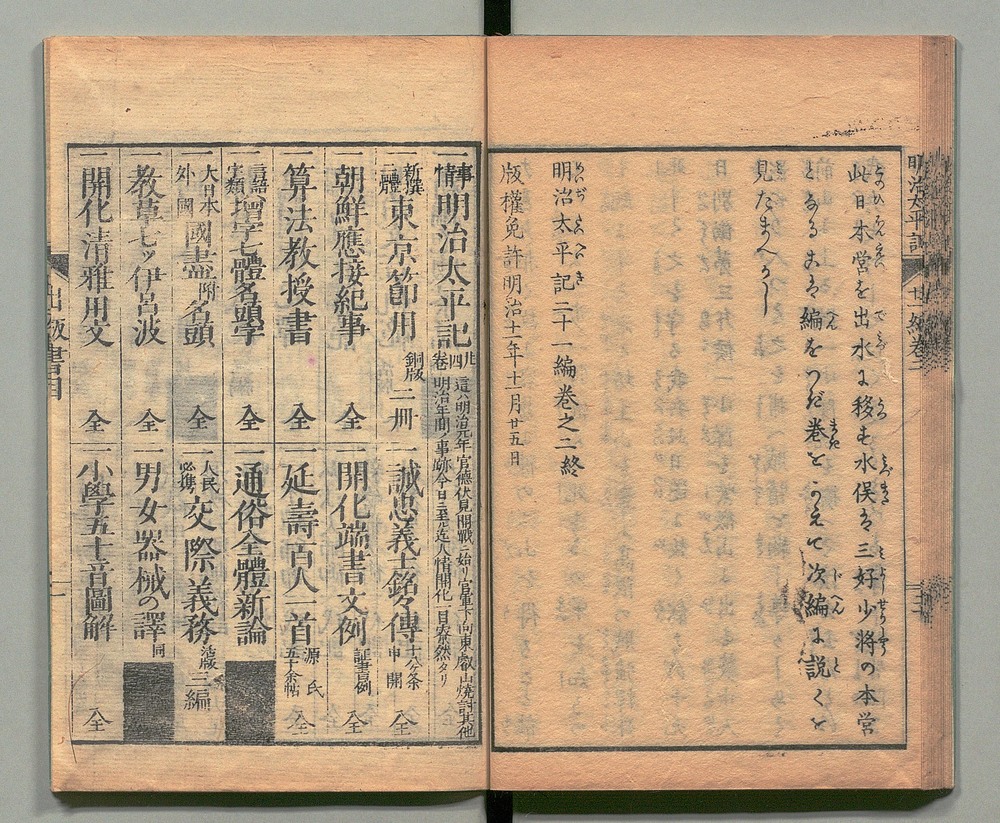 明治太平記 廿一編卷二
此日本営を出水に移す水俣は三好少将の本営
となるこは編をつぎ巻をかえて次編に説くを
見たまへかし
明治太平記二十一編巻之二終
版權免許明治十年十二月廿五日
事情 明治太平記 四卷 這ハ明治元年官德伏見開戰ニ始リ官軍下向東叡山燒討其他
明治年間ノ事跡今日ニ至ル迄人情開化一目寮然タリ
新撰三體 東京節用 銅版 二冊
一誠忠義士銘々傳 十八ケ条申開 全
一朝鮮應接紀事 全
一開化端書文例 証書例 全
一算法教授書 全
一延壽百人一首 源氏五十余帖 全
言語字類 増字七體名頭字 全
一通俗全體新論
大日本外國 國盡 附名頭 全
人民必携 交際義務 活版 三編
一教草七ツ伊呂波 全
一男女器械の譯 同
一開化清雅用文 全
一小學五十音圖解 全
出版書目